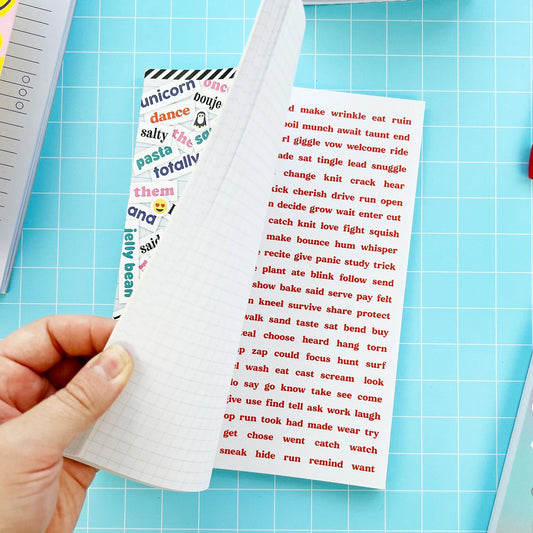 unicorn once
bouje
dance
salty the
pasta
totally
them
ana
said
jelly bean
make wrinkle eat ruin
munch await taunt end
giggle vow welcome ride
sat tingle lead snuggle
change knit crack hear
cherish drive run open
decide grow wait enter cut
catch knit love fight squish
make bounce hum whisper
recite give panic study trick
plant ate blink follow send
show bake said serve pay felt
kneel survive share protect
walk sand taste sat bend buy
choose heard hang torn
zap could focus hunt surf
wash eat cast scream look
say go know take see come
give use find tell ask work laugh
run took had made wear try
get chose went catch watch
sneak hide run remind want